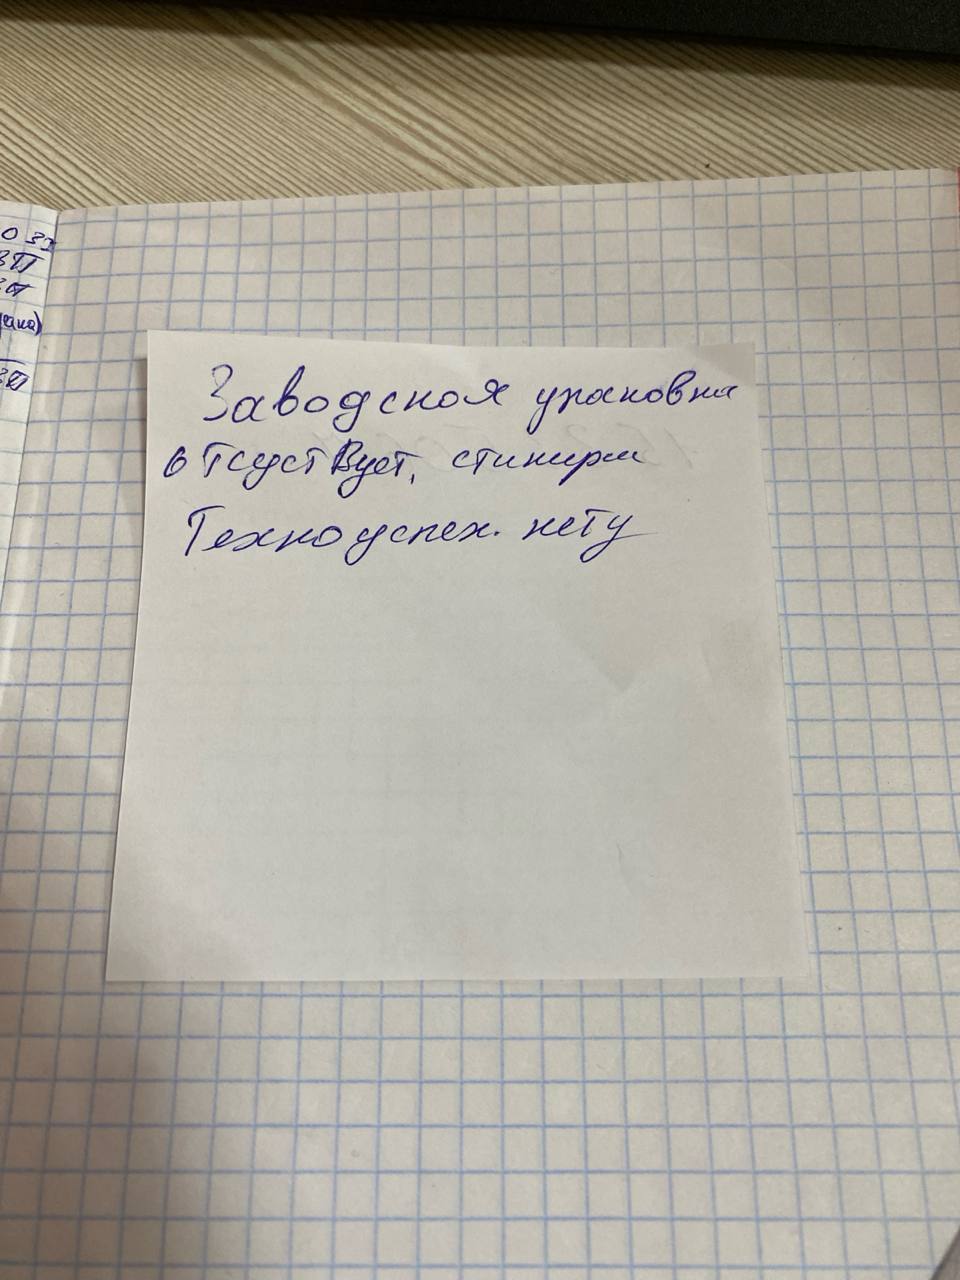 Заводская упаковка
отсуствует, стикера
Техноуспех. нету